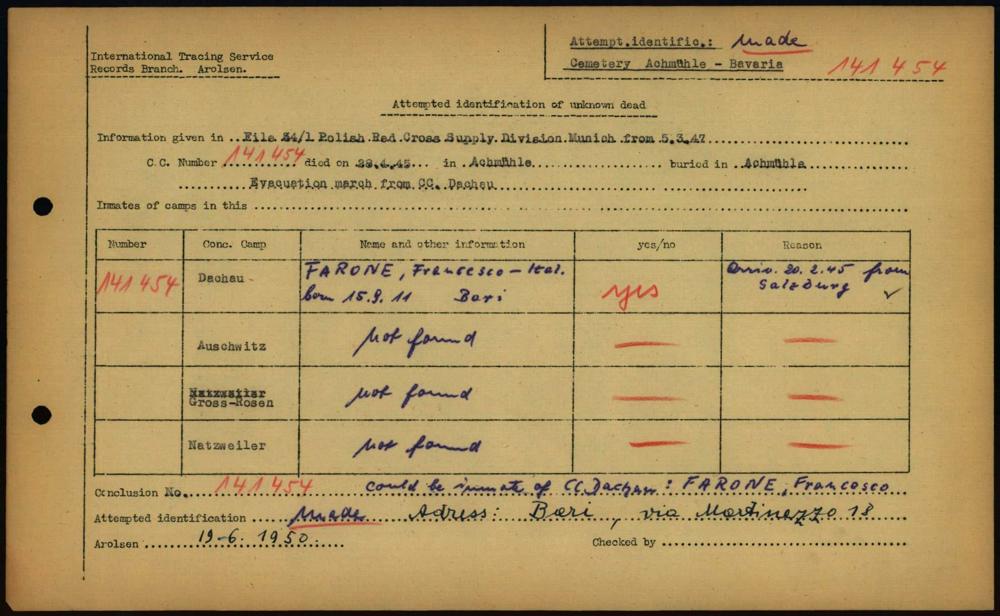 International Tracing Service
Records Branch. Arolsen.
Attempt.identific.: made
Cemetery Achmühle - Bavaria
141 454
Attempted identification of unknown dead
Information given in ..File 34/1 Polish Red Cross Supply Division Munich from 5.3.47
C.C. Number 141454 died on 29.4.45 in Achmühle buried in Achmühle
Evacuation march from CC. Dachau
Inmates of camps in this
Number Conc. Camp Name and other information yes/no Reason
141 454 Dachau FARONE, Francesco - Ital. born 15.9.11 Bari yes Arriv. 20.2.45 from Salzburg ✓
Auschwitz not found — —
Natzweiler
Gross-Rosen not found — —
Natzweiler not found — —
Conclusion No. 141454 could be inmate of CC Dachau: FARONE, Francesco
Attempted identification made Adress: Bari, via Martinezzo 18
Arolsen 19-6. 1950. Checked by